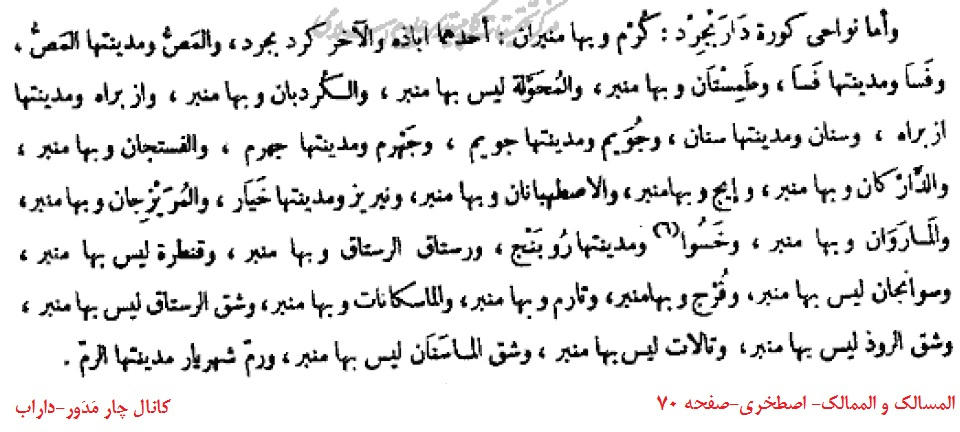 وأما نواحى كورة دَارَبْجِرْد : كُرْم وبها منبران : أحدهما اباذه والآخر كرد بجرد ، والمَصُّ ومدينتها المَصُّ ،
وفَسَا ومدينتها فَسَا ، وطَمِسْتَان وبها منبر، والمُحَوَّلة ليس بها منبر ، والكُردبان وبها منبر ، وازبراه ومدينتها
ازبراه ، وسنان ومدينتها سنان ، وجُوَيم ومدينتها جويم ، وجَهْرم ومدينتها جهرم ، والفستجان وبها منبر ،
والدَّارْكان وبها منبر ، وإيج وبهامنبر، والاصطهبانان وبها منبر، ونيريز ومدينتها خَيَار ، والمُرَيْزِجان وبها منبر،
والمارَوَان وبها منبر ، وخَسُوا(٦) ومدينتها رُوبَنْج ، ورستاق الرستاق وبها منبر ، وقنطرة ليس بها منبر ،
وسوانجان ليس بها منبر، وفُرْج وبهامنبر، وتارم وبها منبر، والماسكانات وبها منبر، وشق الرستاق ليس بها منبر ،
وشق الروذ ليس بها منبر، وتالات ليس بها منبر ، وشق الماسَنَان ليس بها منبر ، ورمّ شهريار مدينتها الرمّ .
المسالک و الممالک- اصطخری-صفحه ۷۰
کانال چار مَدَور-داراب